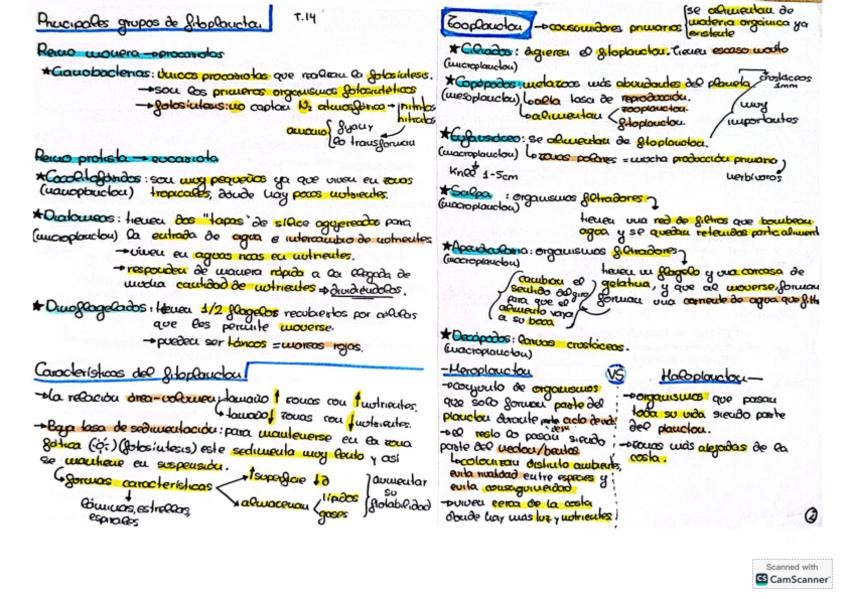 Principales grupos de fitoplancton T.14
Reino monera → procariotas
★Cianobacterias: únicos procariotas que realizan la fotosíntesis.
→ son los primeros organismos fotosintéticos
→ fotosíntesis: no captan N₂ atmosférico → nitritos
nitratos
amonio { fijan y
lo transforman
Reino protista → eucariota
★Cocolitofóridos: son muy pequeños ya que viven en zonas
(nanoplancton) tropicales, donde hay pocos nutrientes.
★Diatomeas: tienen dos "tapas" de sílice agujereados para
(microplancton) la entrada de agua e intercambio de nutrientes
→ viven en aguas ricas en nutrientes.
→ responden de manera rápida a la llegada de
mucha cantidad de nutrientes → dividiéndolos.
★Dinoflagelados: tienen 1/2 flagelos recubiertos por
que les permite moverse.
→ pueden ser tóxicos = mareas rojas.
Características del fitoplancton
→ La relación área-volumen: tamaño ↑ zonas con ↑ nutrientes.
tamaño ↓ zonas con ↓ nutrientes.
→ Baja tasa de sedimentación: para mantenerse en la zona
fótica (fotosíntesis) este sedimenta muy lento y así
se mantiene en suspensión.
↳ formas características ↑ superficie
→ almacenan lípidos
gases
aumentar
su
flotabilidad
cónicas, estrellas,
espirales
Zooplancton → consumidores primarios [se alimentan de
materia orgánica ya
existente
★Ciliados: digieren el fitoplancton. Tienen escaso
(microplancton)
★Copépodos: metazoos más abundantes del planeta.
(mesoplancton) ↳ alta tasa de reproducción.
↳ alimentan zooplancton.
fitoplancton.
crustáceos
1mm
muy
importantes
★Eufausiáceo: se alimentan de fitoplancton.
(macroplancton) ↳ zonas polares = mucha producción primaria
Krill 1-5cm
herbívoros
★Salpa: organismos filtradores
(macroplancton)
tienen una red de filtros que bombean
agua y se quedan retenidas
★Apendicularia: organismos filtradores
(macroplancton)
tienen un flagelo y una carcasa de
gelatina, y que al moverse forman
forman una corriente de agua que
cambian el
sentido del giro
para que el
alimento vaya
a su boca
★Decápodos: larvas crustáceos.
(macroplancton)
-Meroplancton VS Holoplancton-
→ conjunto de organismos
que solo forman parte del
plancton durante parte ciclo de vida
→ el resto lo pasan siendo
parte del necton/bentos
↳ colonizan distinto ambiente,
evita rivalidad entre especies y
evita consanguinidad
→ viven cerca de la costa
donde hay más luz y nutrientes
→ organismos que pasan
toda su vida siendo parte
del plancton.
→ zonas más alejadas de la
costa.
Scanned with
CS CamScanner